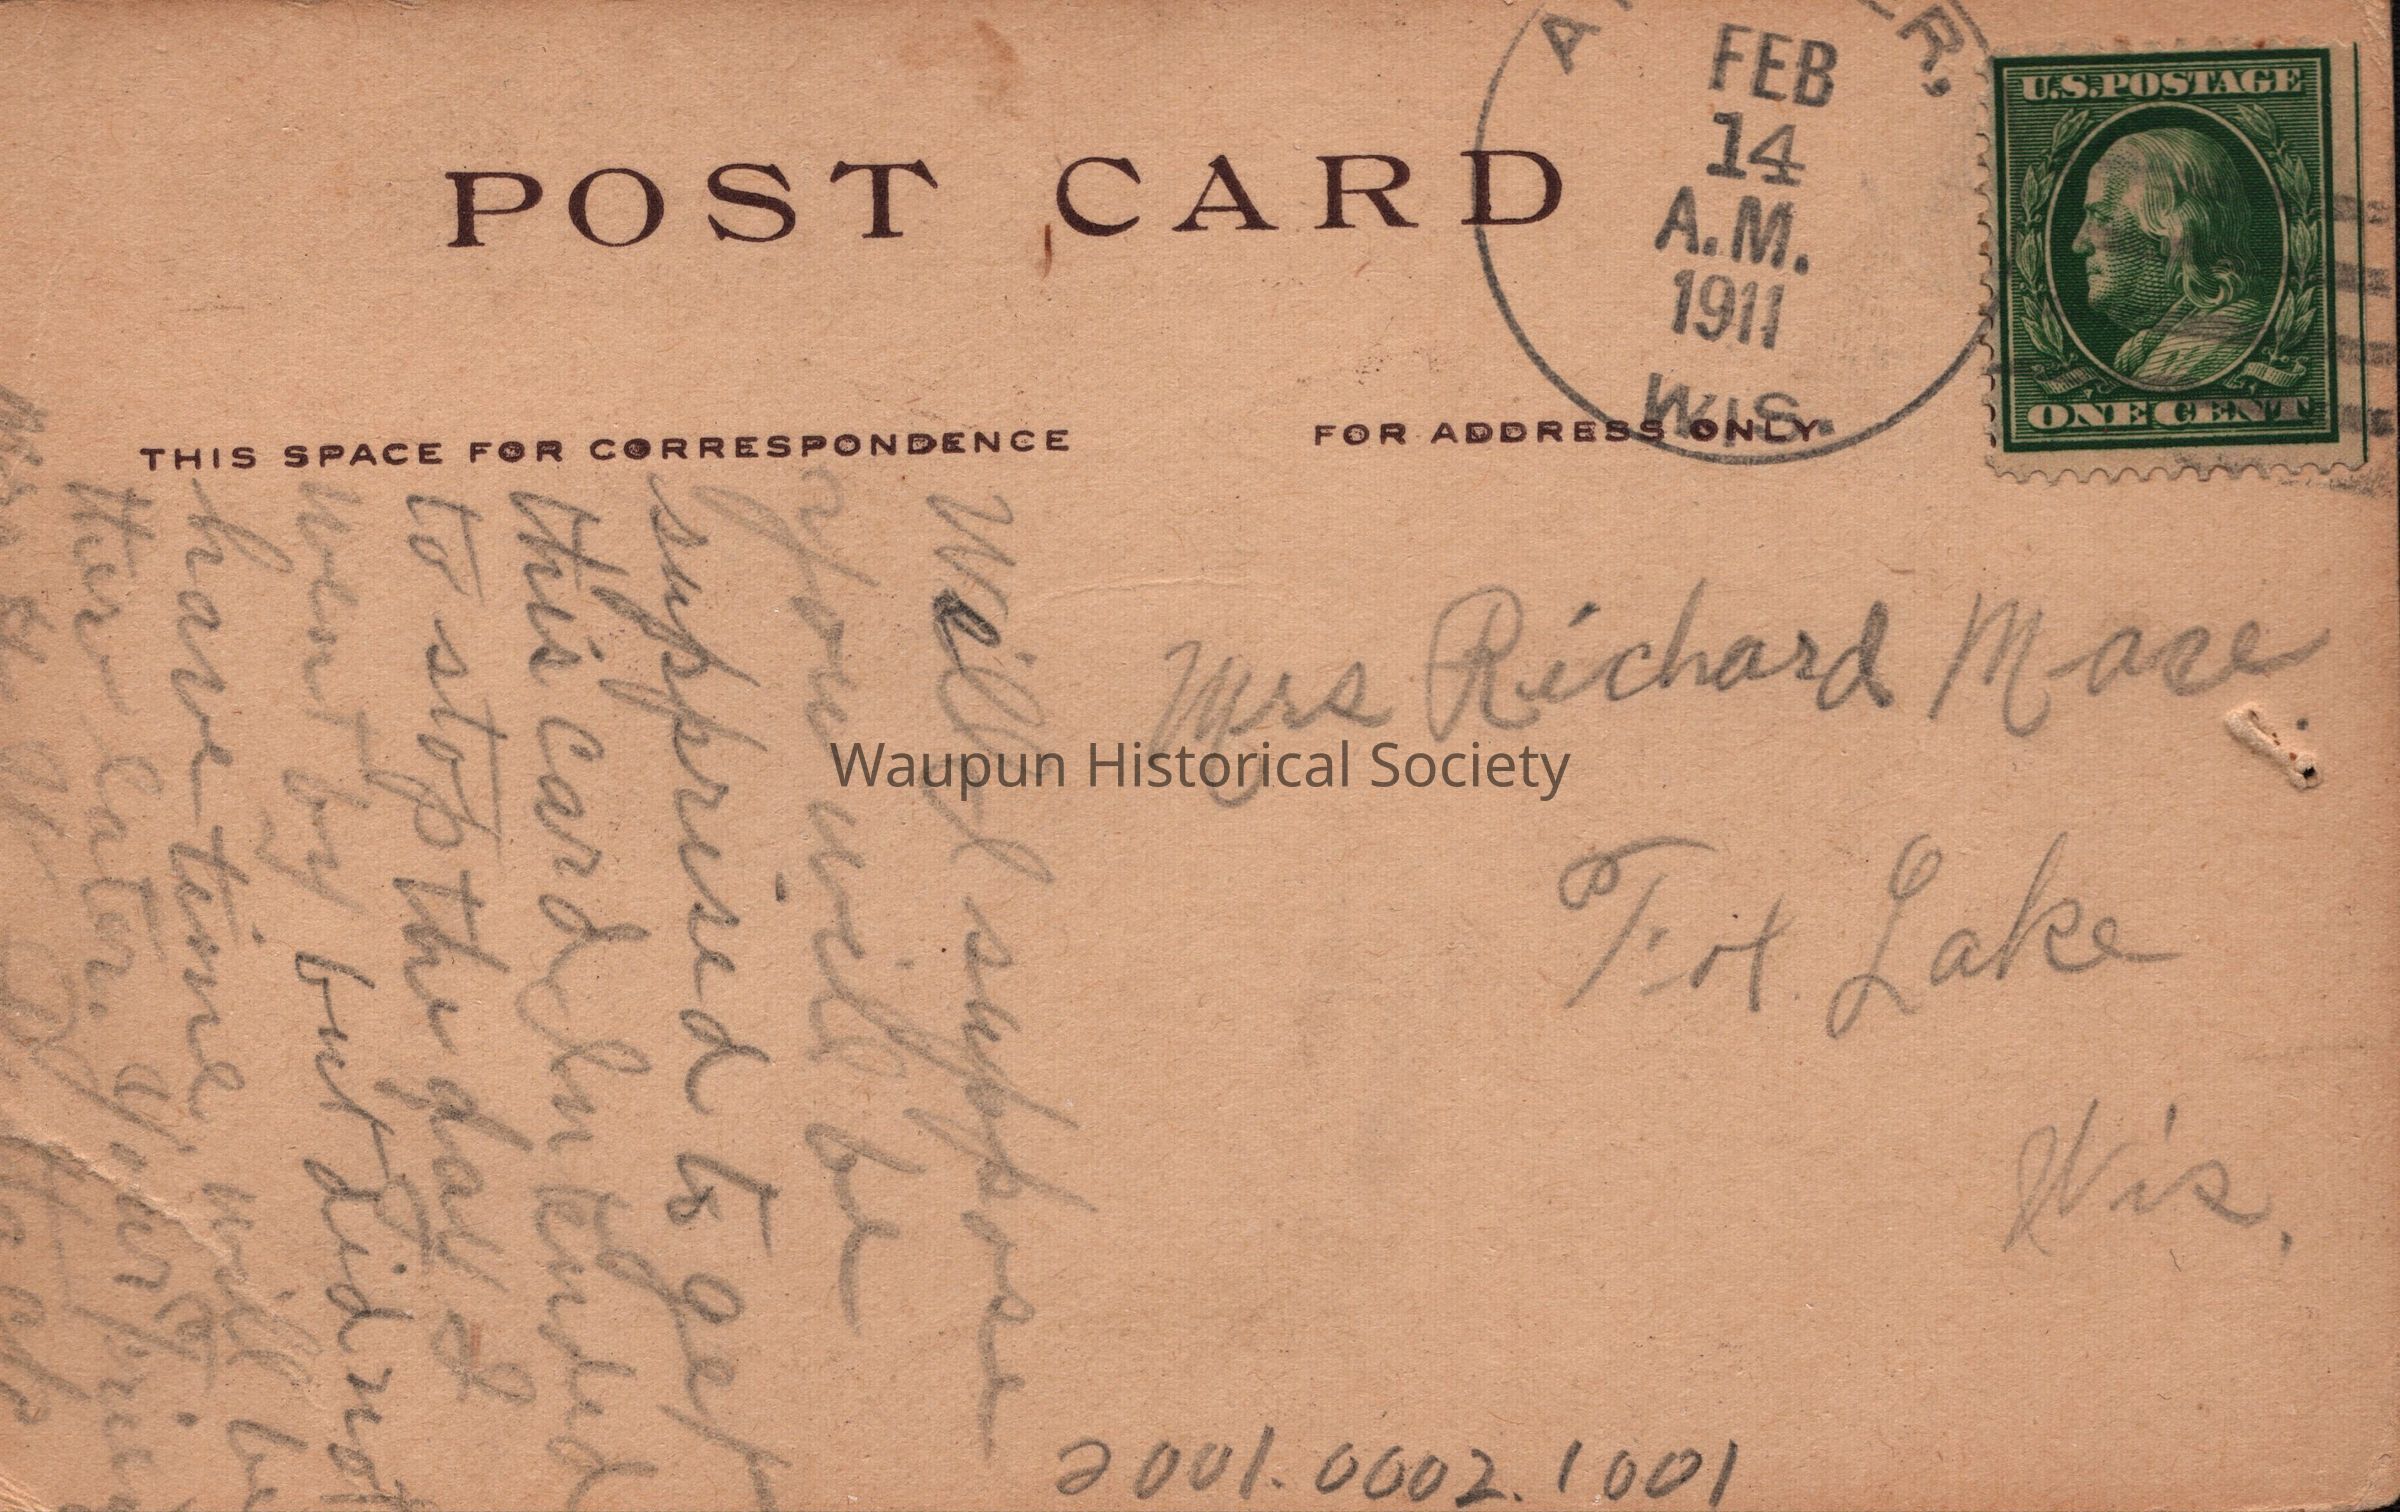 POST CARD
FEB
14
A.M.
1911
WIS.
U.S. POSTAGE
ONE CENT
THIS SPACE FOR CORRESPONDENCE
FOR ADDRESS ONLY
Mrs Richard Mace.
Fox Lake
Wis.
Well I suppose
you will be
supprised to get
this card I intended
to stop the day I
went by but did not
have time, will be
there later. your
Waupun Historical Society
2001.0002.1001